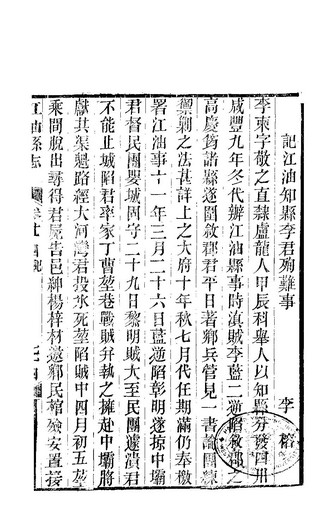 記江油知縣李君殉難事
李榕
李柬字敬之直隸盧龍人甲辰科舉人以知縣分發四川
咸豐九年冬代辦江油縣事時滇賊李藍二逆陷敘郡之
高慶筠諸縣遂圍敘郡君平日著鄉兵管見一書論團練
禦剿之法甚詳上之大府十年秋七月代任期滿仍奉檄
署江油事十一年三月二十六日藍逆陷彰明遂掠中壩
君督民團嬰城固守二十九日黎明賊大至民團遽潰君
不能止城陷君率家丁曹堃巷戰賊幷執之擁赴中壩將
獻其渠魁路經大河灣君投水死堃陷賊中四月初五堃
乘間脫出尋得君屍告邑紳楊梓材遂鄉民棺殮安置接
江油縣志 卷廿四 死